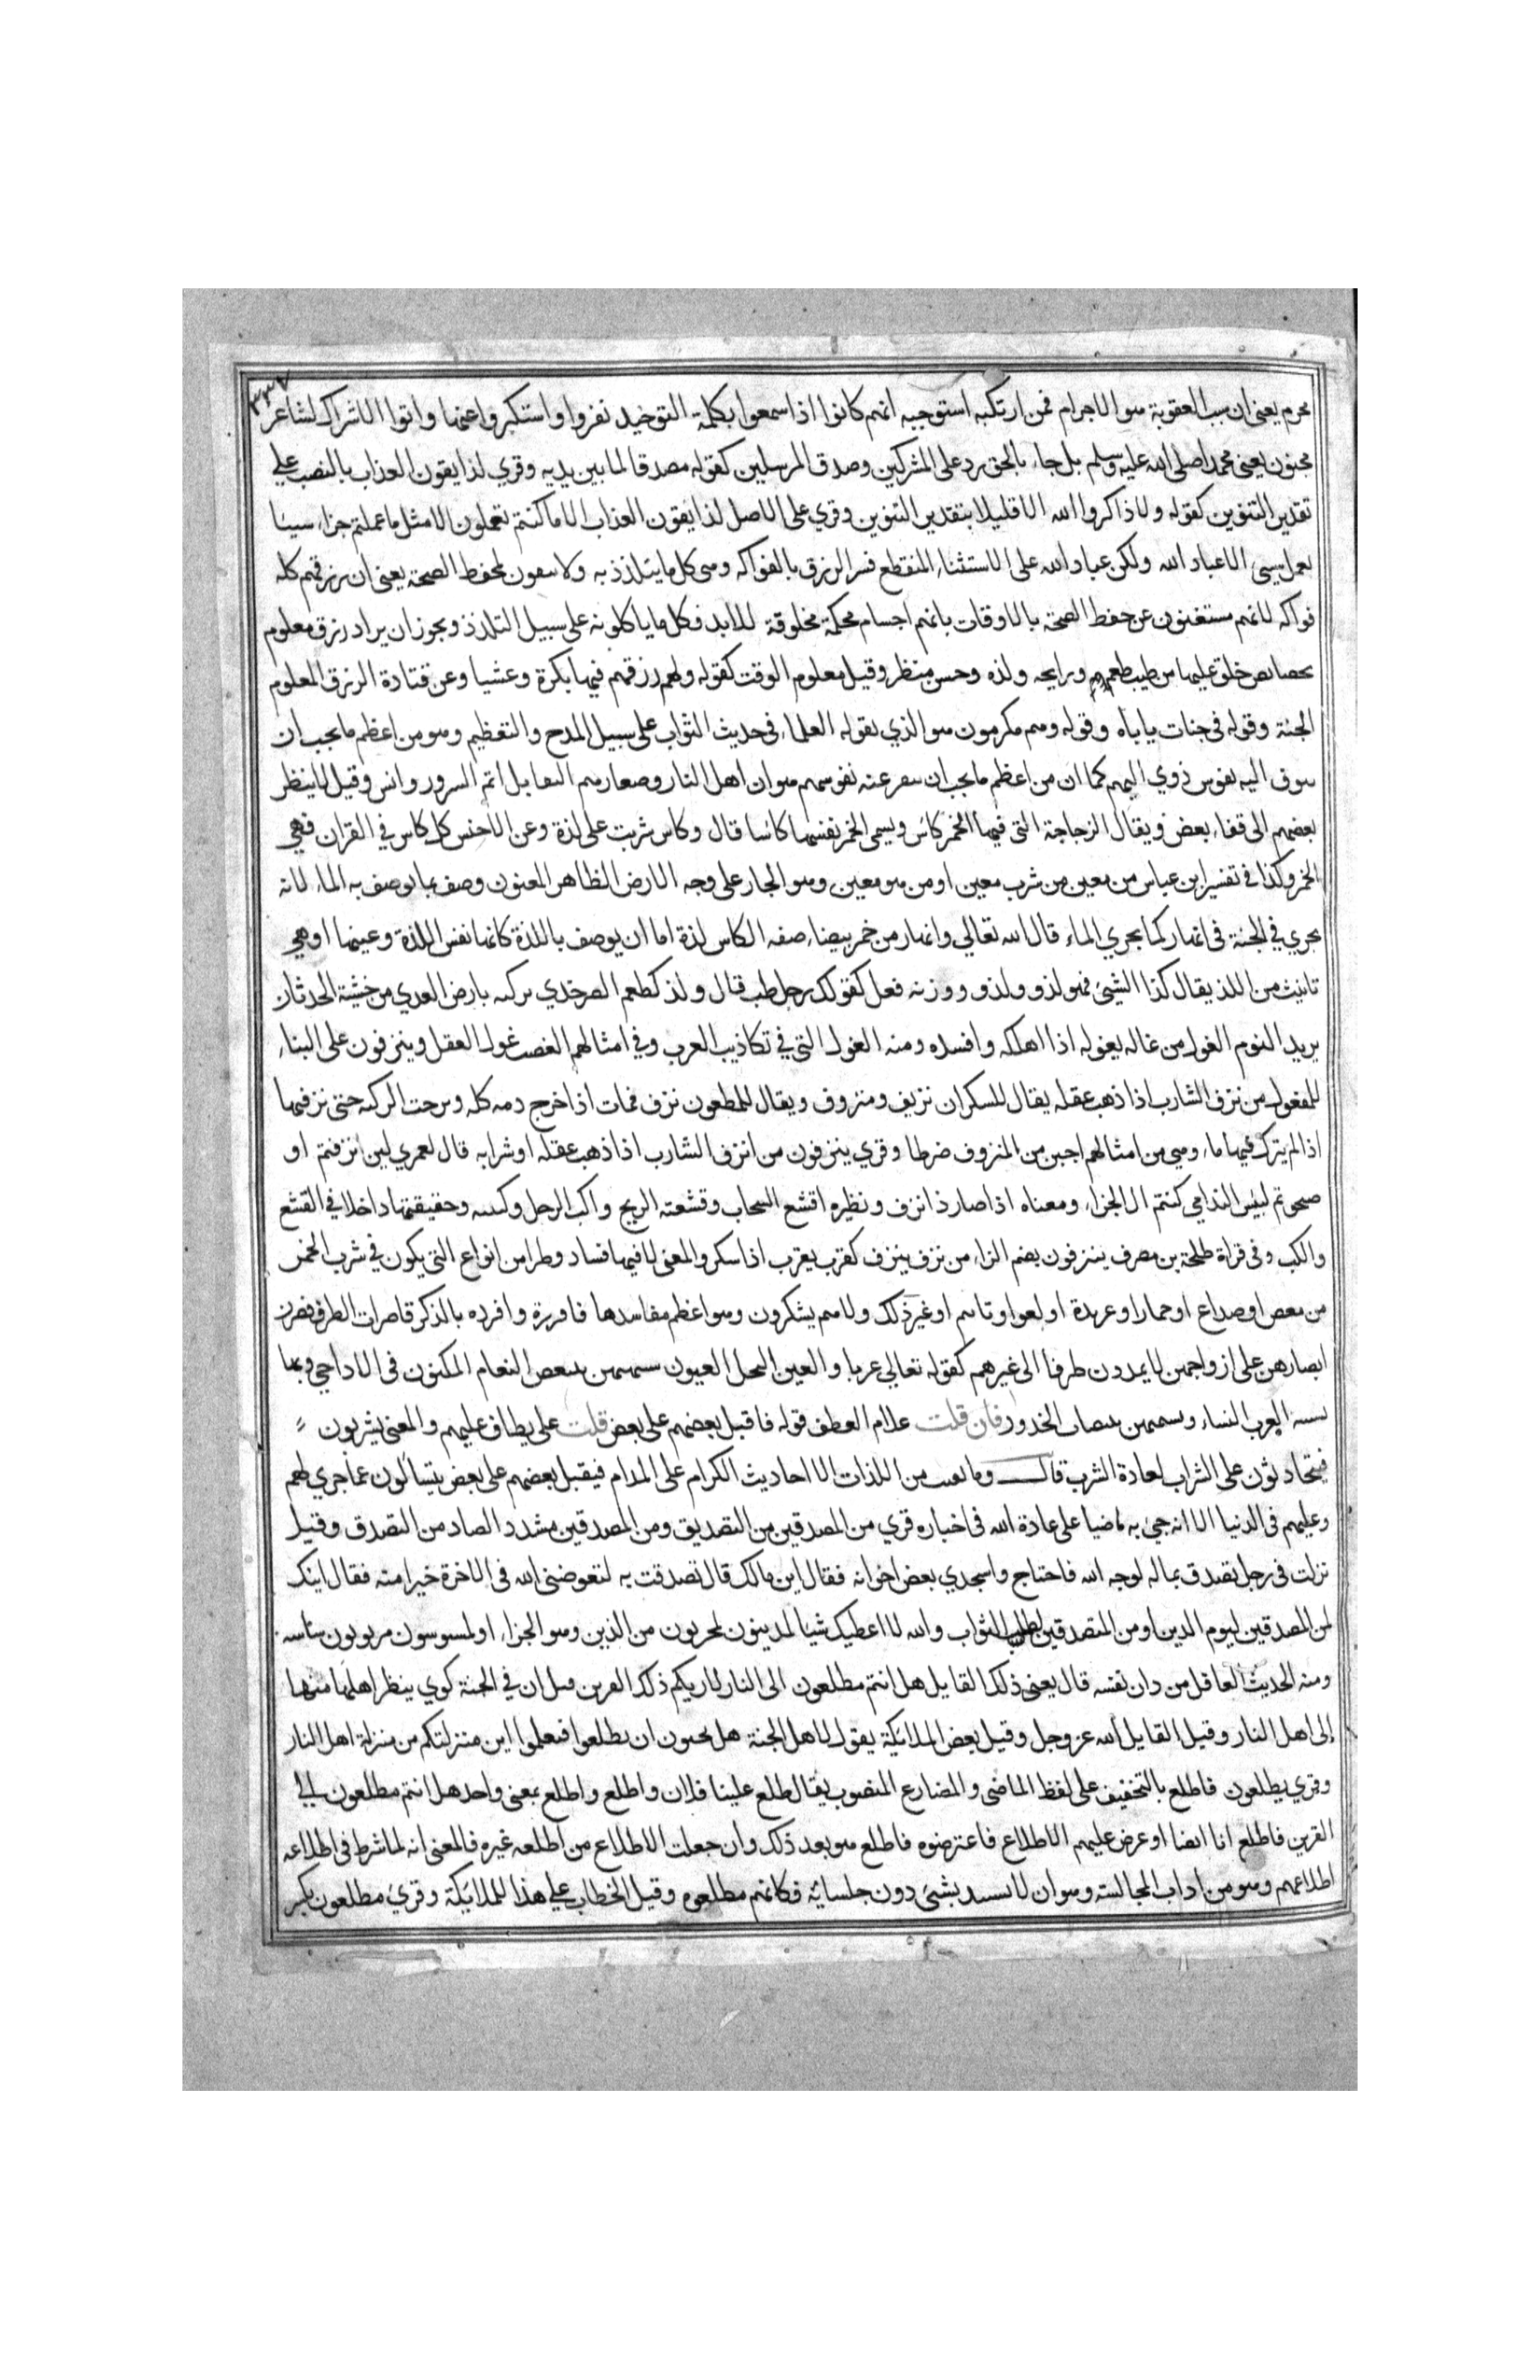 ٣٣٧
مجرم يعنى ان سبب العقوبة هو الاجرام فمن ارتكبه استوجبه انهم كانوا اذا سمعوا بكلمة التوحيد نفروا واستكبروا عنها وابوا الا الشراك لشاعر
مجنون يعنى محمدا صلى الله عليه وسلم بل جاء بالحق رد على المشركين وصدق المرسلين كقوله مصدقا لما بين يديه وقري لذايقون العذاب بالنصب على
تقدير التنوين كقوله ولا ذاكروا الله الا قليلا بتقدير التنوين وقري على الاصل لذايقون العذاب الا ما كنتم تعملون الا مثل ما عملتم جزاء سيئا
بعمل سيئ الا عباد الله ولكن عباد الله على الاستثناء المنقطع فسر الرزق بالفواكه وهى كل ما يتلذذ به ولا يتقوت لحفظ الصحة يعنى ان رزقهم كله
فواكه لانهم مستغنون عن حفظ الصحة بالاوقات بانهم اجسام محكمة مخلوقة للابد فكل ما ياكلونه على سبيل التلذذ ويجوز ان يراد رزق معلوم
بخصايص خلق عليها من طيب طعم ورايحه ولذه وحسن منظر وقيل معلوم الوقت كقوله ولهم رزقهم فيها بكرة وعشيا وعن قتادة الرزق المعلوم
الجنة وقوله فى جنات ياباه وقوله وهم مكرمون هو الذي يقوله العلماء فى حديث الثواب على سبيل المدح والتعظيم وهو من اعظم ما يجب ان
تتوق اليه نفوس ذوي الهمم كما ان من اعظم ما يجب ان تنفر عنه نفوسهم هو ان اهل النار وصغارهم التقابل اتم السرور وانس وقيل لا ينظر
بعضهم الى قفاء بعض ويقال الزجاجة التى فيها الخمر كاس ويسمى الخمر نفسها كاسا قال وكاس شربت على لذة وعن الاخفس كل كاس في القران فهي
الخمر وكذا في تفسير ابن عباس من معين من شرب معين او من هو معين وهو الجار على وجه الارض الظاهر المعنون وصف بما يوصف به الماء لانه
يجري في الجنة فى انهار كما يجري الماء قال الله تعالى وانهار من خمر بيضاء صفه الكاس لذة اما ان يوصف باللذة كانها نفس اللذة وعينها او هي
تانيث من اللذ يقال كذا الشيئ فهو لذو ولذو ووزنه فعل كقولك رجل طب قال ولذ كطعم الصرخدي تركته بارض العدي من خشية الحدثان
يريد النوم الغول من غاله يغوله اذا اهلكه وافسده ومنه الغول التي في تكاذيب العرب وفي امثالهم الغضب غول العقل وينزفون على البناء
للمفعول من نزف الشارب اذا ذهب عقله يقال للسكران نزيف ومنزوف ويقال للمطعون نزف فمات اذا خرج دمه كله ونزحت الركية حتى نزفتها
اذا لم يترك فيها ماء وهي من امثالهم اجبن من المنزوف ضرطا وقري ينزفون من انزف الشارب اذا ذهب عقله او شرابه قال لعمري لين انزفتم او
صحوتم لبيس الندامى كنتم ال الجزاء ومعناه اذا صار ذا نزف ونظيره اقشع السحاب وقشعته الريح واكب الرجل وكببته وحقيقتها داخلا في القشع
والكب وفى قراة طلحة بن مصرف ينزفون بضم الزاء من نزف ينزف كقرب يقرب اذا سكر والمعنى لا فيها فساد وطر من انواع التي يكون في شرب الخمر
من مغص او صداع او خمار او عربدة او لغو او تاثم او غير ذلك ولا هم يشكرون وهو اعظم مفاسدها فافرزه وافرده بالذكر قاصرات الطرف قصرن
ابصارهن على ازواجهن لا يمددن طرفا الى غيرهم كقوله تعالي عربا والعين النجل العيون شبههن ببيض النعام المكنون فى الاداحي وبها
تشبه العرب النساء ويسميهن بيضات الخدور فان قلت علام العطف قوله فاقبل بعضهم على بعض قلت على يطاف عليهم والمعنى يشربون
فيتحادثون على الشراب لعادة الشرب قال وما بقيت من اللذات الا احاديث الكرام على المدام فيقبل بعضهم على بعض يتسائلون عما جري لهم
وعليهم فى الدنيا الا انه جئ به ماضيا على عادة الله فى اخباره قري من المصدقين من التصديق ومن المصدقين مشدد الصاد من التصدق وقيل
نزلت فى رجل تصدق بماله لوجه الله فاحتاج واستجدي بعض اخوانه فقال اين مالك قال تصدقت به لتعوضنى الله فى الاخرة خيرا منه فقال اينك
لمن المصدقين ليوم الدين او من المتصدقين لطلب الثواب والله لا اعطيك شيا لمدينون لمجزيون من الدين وهو الجزاء او لمسوسون مربوبون
ومنه الحديث العاقل من دان نفسه قال يعنى ذلك القايل هل انتم مطلعون الى النار لاريكم ذلك القرين قيل ان في الجنة كوي ينظر اهلها منها
إلى اهل النار وقيل القايل الله عز وجل وقيل بعض الملائيكة يقول لاهل الجنة هل تحبون ان تطلعوا فتعلموا اين منزلتكم من منزلة اهل النار
وقري يطلعون فاطلع بالتخفيف على لفظ الماضى والمضارع المنصوب يقال طلع علينا فلان واطلع واطلع بمعنى واحد هل انتم مطلعون الى
القرين فاطلع انا ايضا او عرض عليهم الاطلاع فاعترضوه فاطلع هو بعد ذلك وان جعلت الاطلاع من اطلعه غيره فالمعنى انه لما شرط فى اطلاعه
اطلاعهم وهو من اداب المجالسة وهو ان لا يستبد بشئ دون جلسائه فكانهم مطلعوه وقيل الخطاب على هذا للملائيكة وقرئ مطلعون بكسر